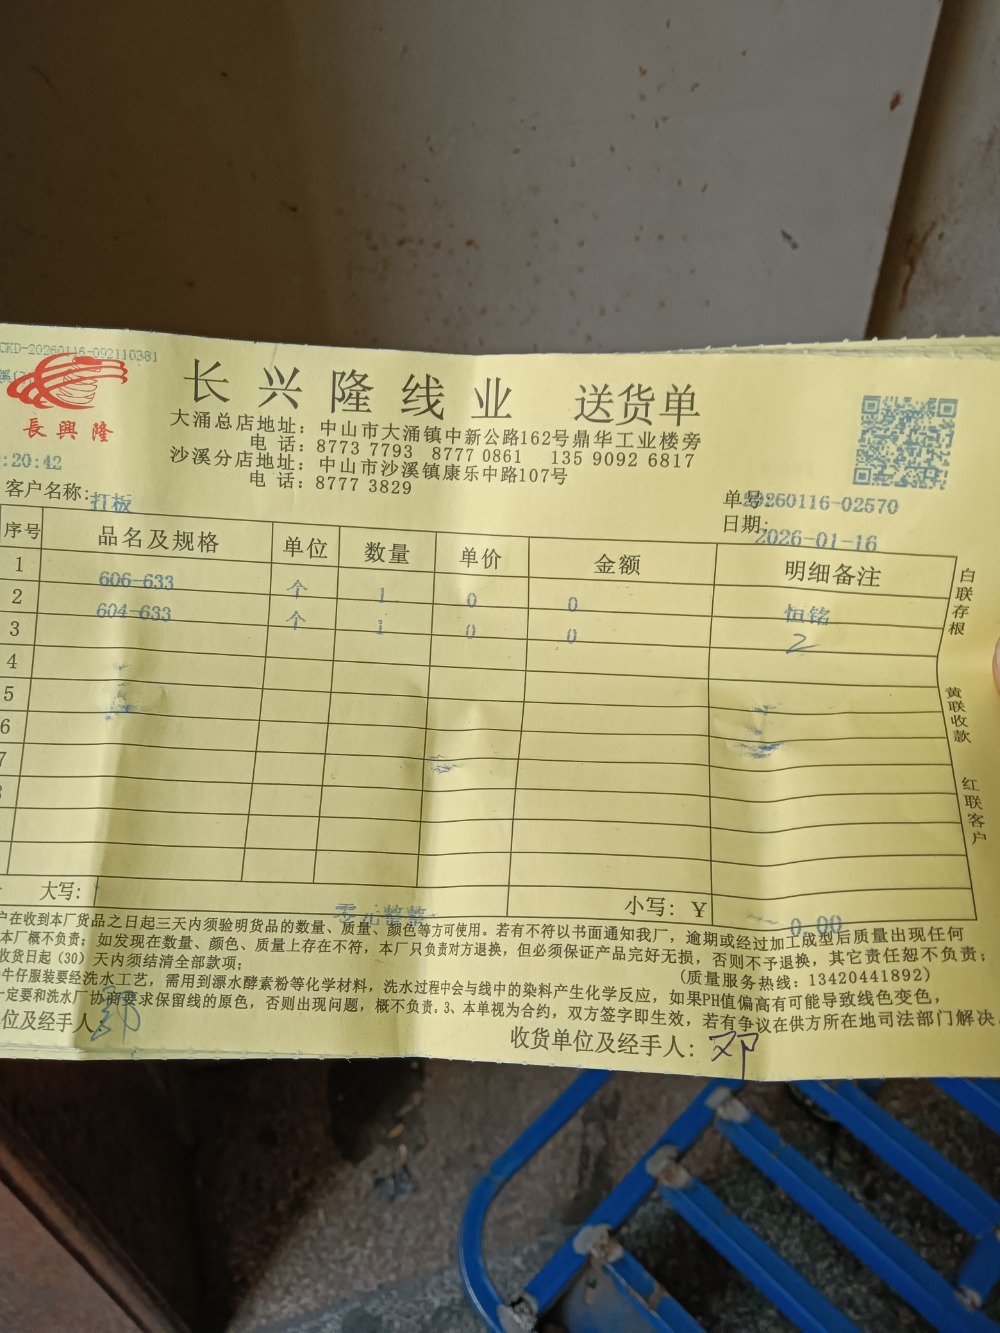 CKD-20260116-092110381
長興隆
长兴隆线业 送货单
大涌总店地址：中山市大涌镇中新公路162号鼎华工业楼旁
电 话：8773 7793 8777 0861 135 9092 6817
沙溪分店地址：中山市沙溪镇康乐中路107号
电 话：8777 3829
:20:42
客户名称：打板
单号：20260116-02570
日期：2026-01-16
序号 品名及规格 单位 数量 单价 金额 明细备注
1 606-633 个 1 0 0 恒铭
2 604-633 个 1 0 0 2
3
4
5
6
7
大写：零元整
小写：￥ 0.00
白联存根
黄联收款
红联客户
户在收到本厂货品之日起三天内须验明货品的数量、质量、颜色等方可使用。若有不符以书面通知我厂，逾期或经过加工成型后质量出现任何
本厂概不负责；如发现在数量、颜色、质量上存在不符，本厂只负责对方退换，但必须保证产品完好无损，否则不予退换，其它责任恕不负责；
收货日起（30）天内须结清全部款项；
(质量服务热线：13420441892)
牛仔服装要经洗水工艺，需用到漂水酵素粉等化学材料，洗水过程中会与线中的染料产生化学反应，如果PH值偏高有可能导致线色变色，
一定要和洗水厂协商要求保留线的原色，否则出现问题，概不负责。3、本单视为合约，双方签字即生效，若有争议在供方所在地司法部门解决。
位及经手人
收货单位及经手人：邓